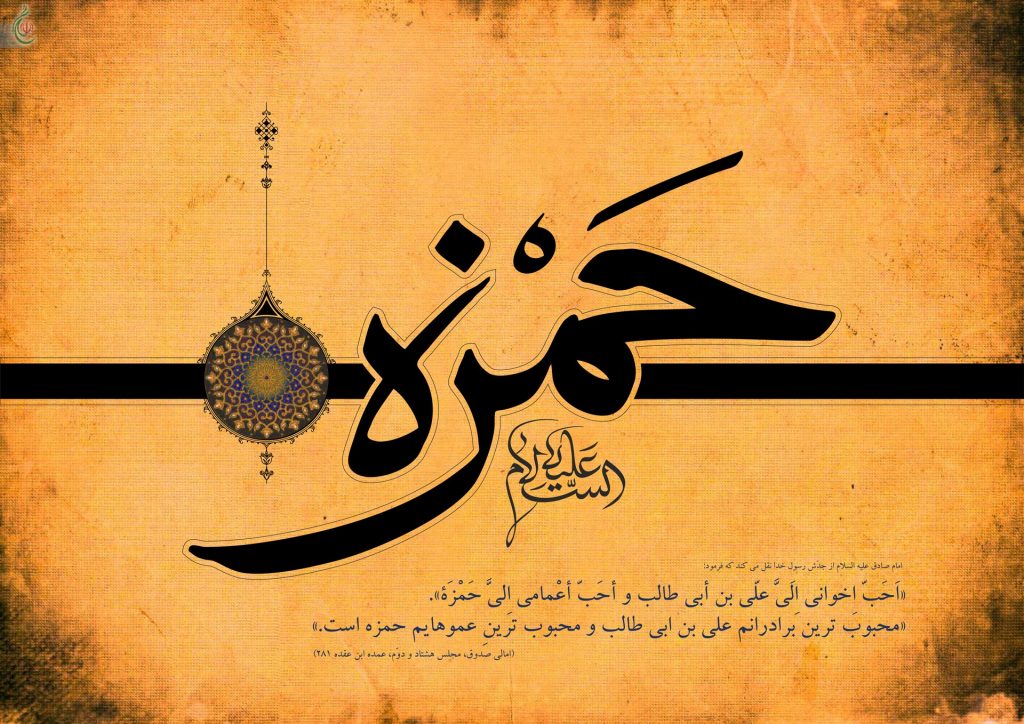 حَمْزه
عَلَیهِ السَّلام
امام صادق علیه السلام از جدش رسول خدا نقل می کند که فرمود:
«اَحَبّ اِخوانی اِلَیَّ علّی بن أبی طالب و أحَبّ أعْمامی الیَّ حَمْزَة».
«محبوبَ ترین بَرادرانم علی بن ابی طالب و محبوب تَرینِ عموهایم حمزه است.»
(امالی صدوق، مجلس هشتاد و دوّم، عمده ابن عقده ۲۸۱)